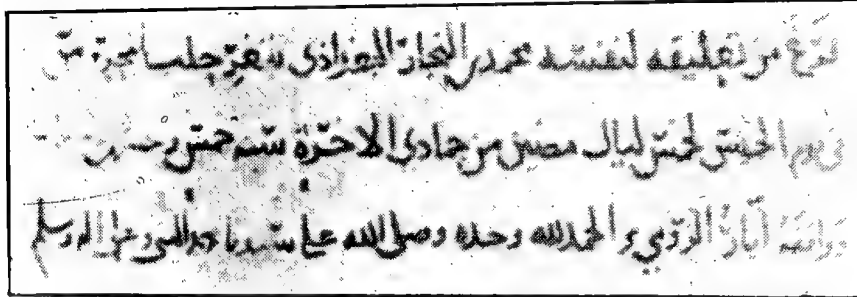 فرغ من تعليقه لنفسه محمد بن النجار البغدادي بثغر حلب
في يوم الخميس لخمس ليال مضين من جمادى الاخرة سنة خمس
أيار الرومي والحمد لله وحده وصلى الله على سيدنا محمد النبي وعلى اله وسلم